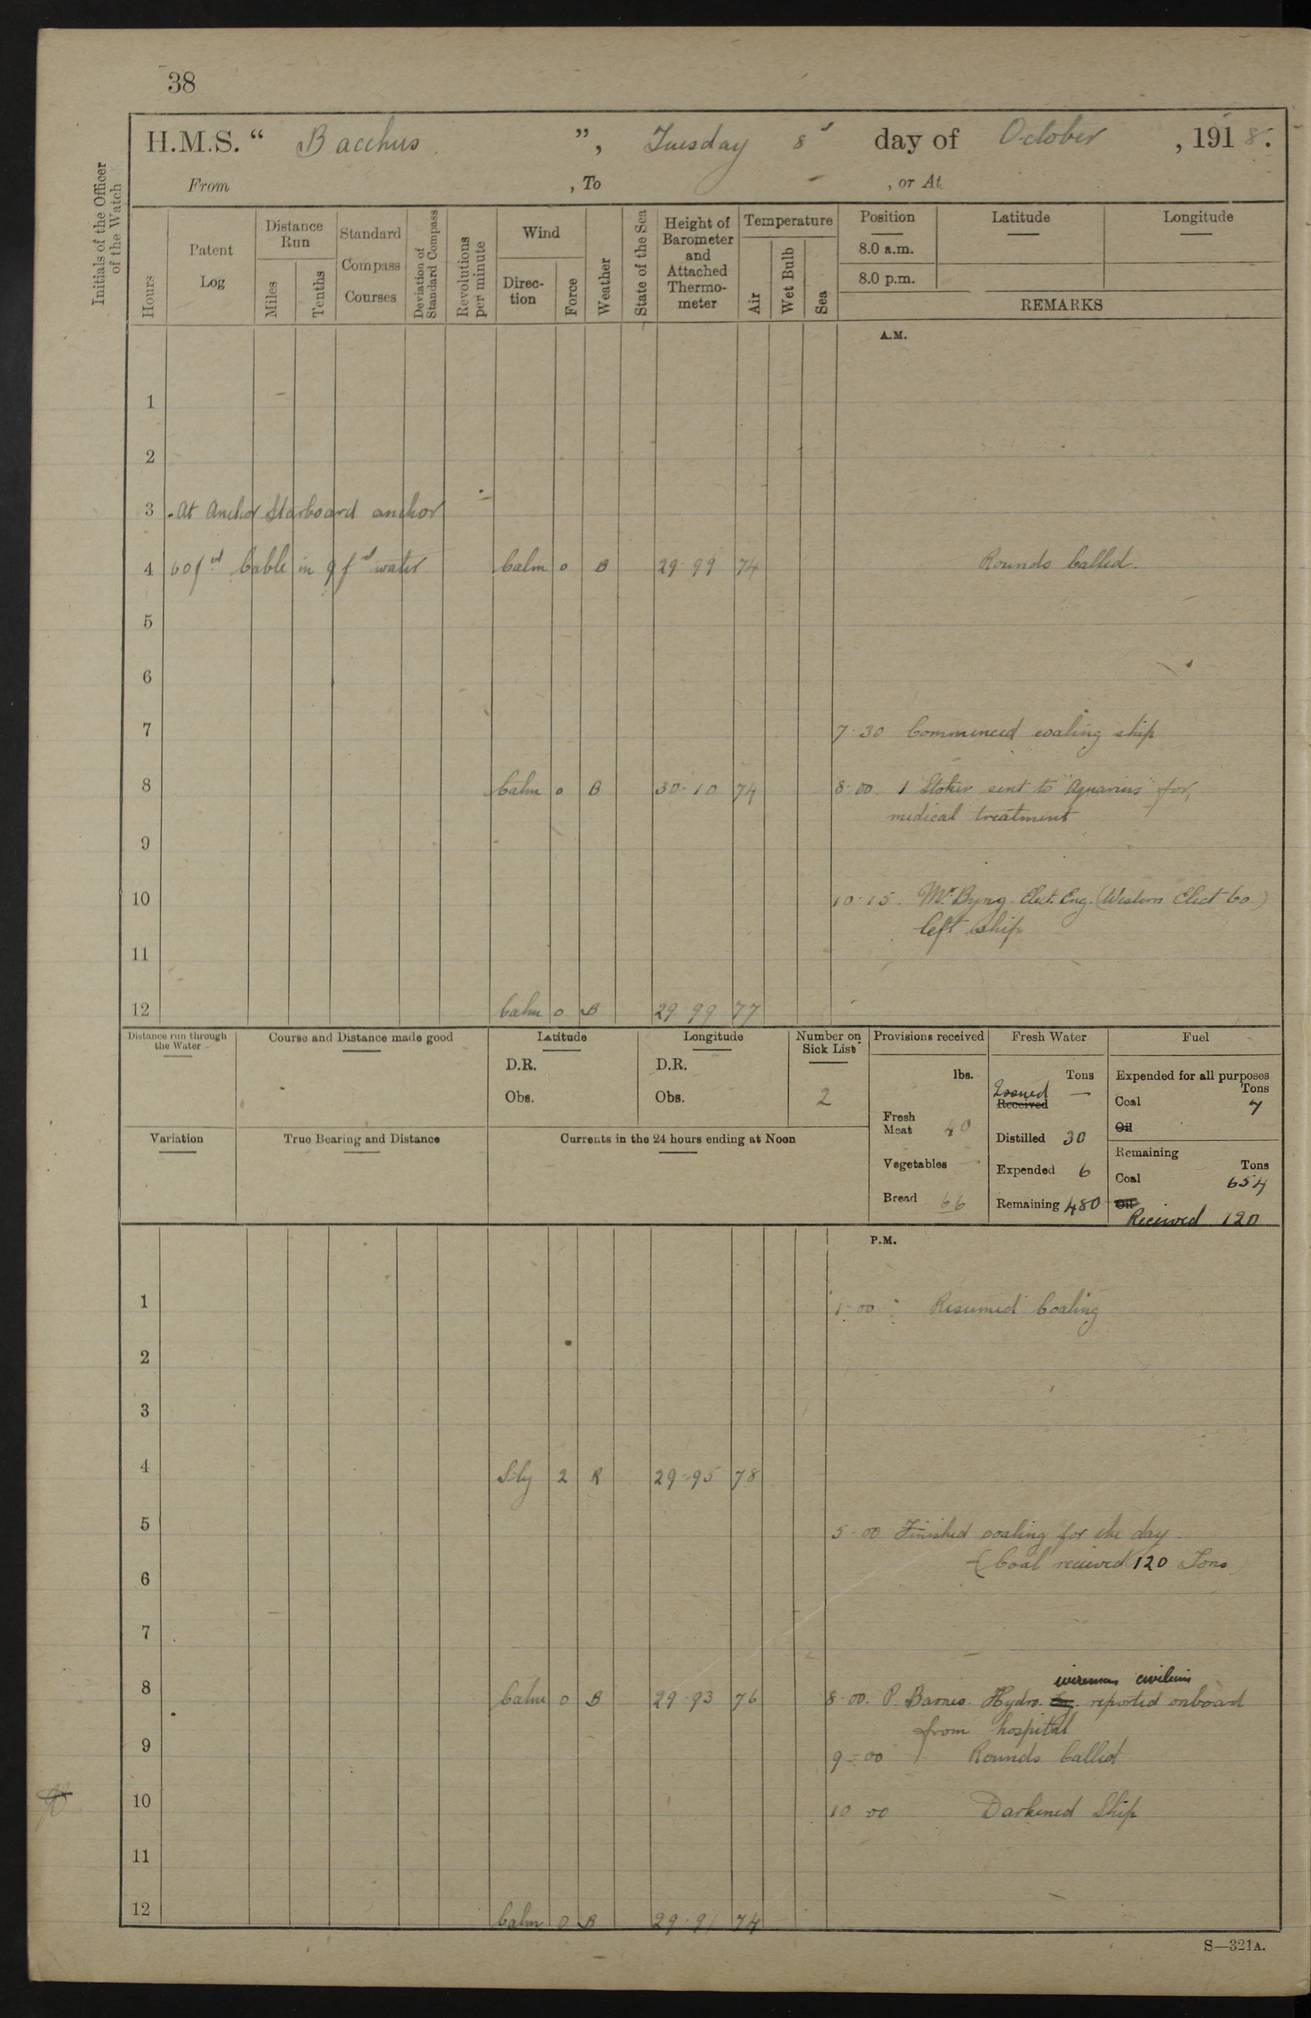 38
H.M.S. “ Bacchus ”, Tuesday 8th day of October , 1918.
From , To , or At
Initials of the Officer of the Watch
Hours
Patent Log
Distance Run
Miles
Tenths
Standard Compass Courses
Deviation of Standard Compass
Revolutions per minute
Wind
Direc-tion
Force
Weather
State of the Sea
Height of Barometer and Attached Thermo-meter
Temperature
Air
Wet Bulb
Sea
Position Latitude Longitude
8.0 a.m.
8.0 p.m.
REMARKS
A.M.
1
2
3 At Anchor Starboard anchor
4 60 fms Cable in 9 fms water Calm 0 B 29·99 74 Rounds Called.
5
6
7 7·30 Commenced coaling ship
8 Calm 0 B 30·10 74 8·00 1 Stoker sent to "Aquarius" for,
medical treatment
9
10 10·15. Mr. Byng Elect. Eng. (Western Elect Co.)
left ship
11
12 Calm 0 B 29·99 77
Distance run through the Water
Course and Distance made good
Latitude
D.R.
Obs.
Longitude
D.R.
Obs.
Number on Sick List
2
Provisions received
lbs.
Fresh Meat 40
Vegetables —
Bread 66
Fresh Water
Tons
Issued —
Received
Distilled 30
Expended 6
Remaining 480
Fuel
Expended for all purposes
Tons
Coal 7
Oil
Remaining
Tons
Coal 654
Oil
Received 120
Variation
True Bearing and Distance
Currents in the 24 hours ending at Noon
P.M.
1 1·00 Resumed Coaling
2
3
4 S·ly 2 R 29·95 78
5 5·00 Finished coaling for the day.
(Coal received 120 Tons)
6
7
wireman civilian
8 Calm 0 B 29·93 76 8·00. P. Barnes. Hydro. reported onboard
from hospital
9 9·00 Rounds Called
10 10 00 Darkened Ship
11
12 Calm 0 B 29·91 74
S—321A.